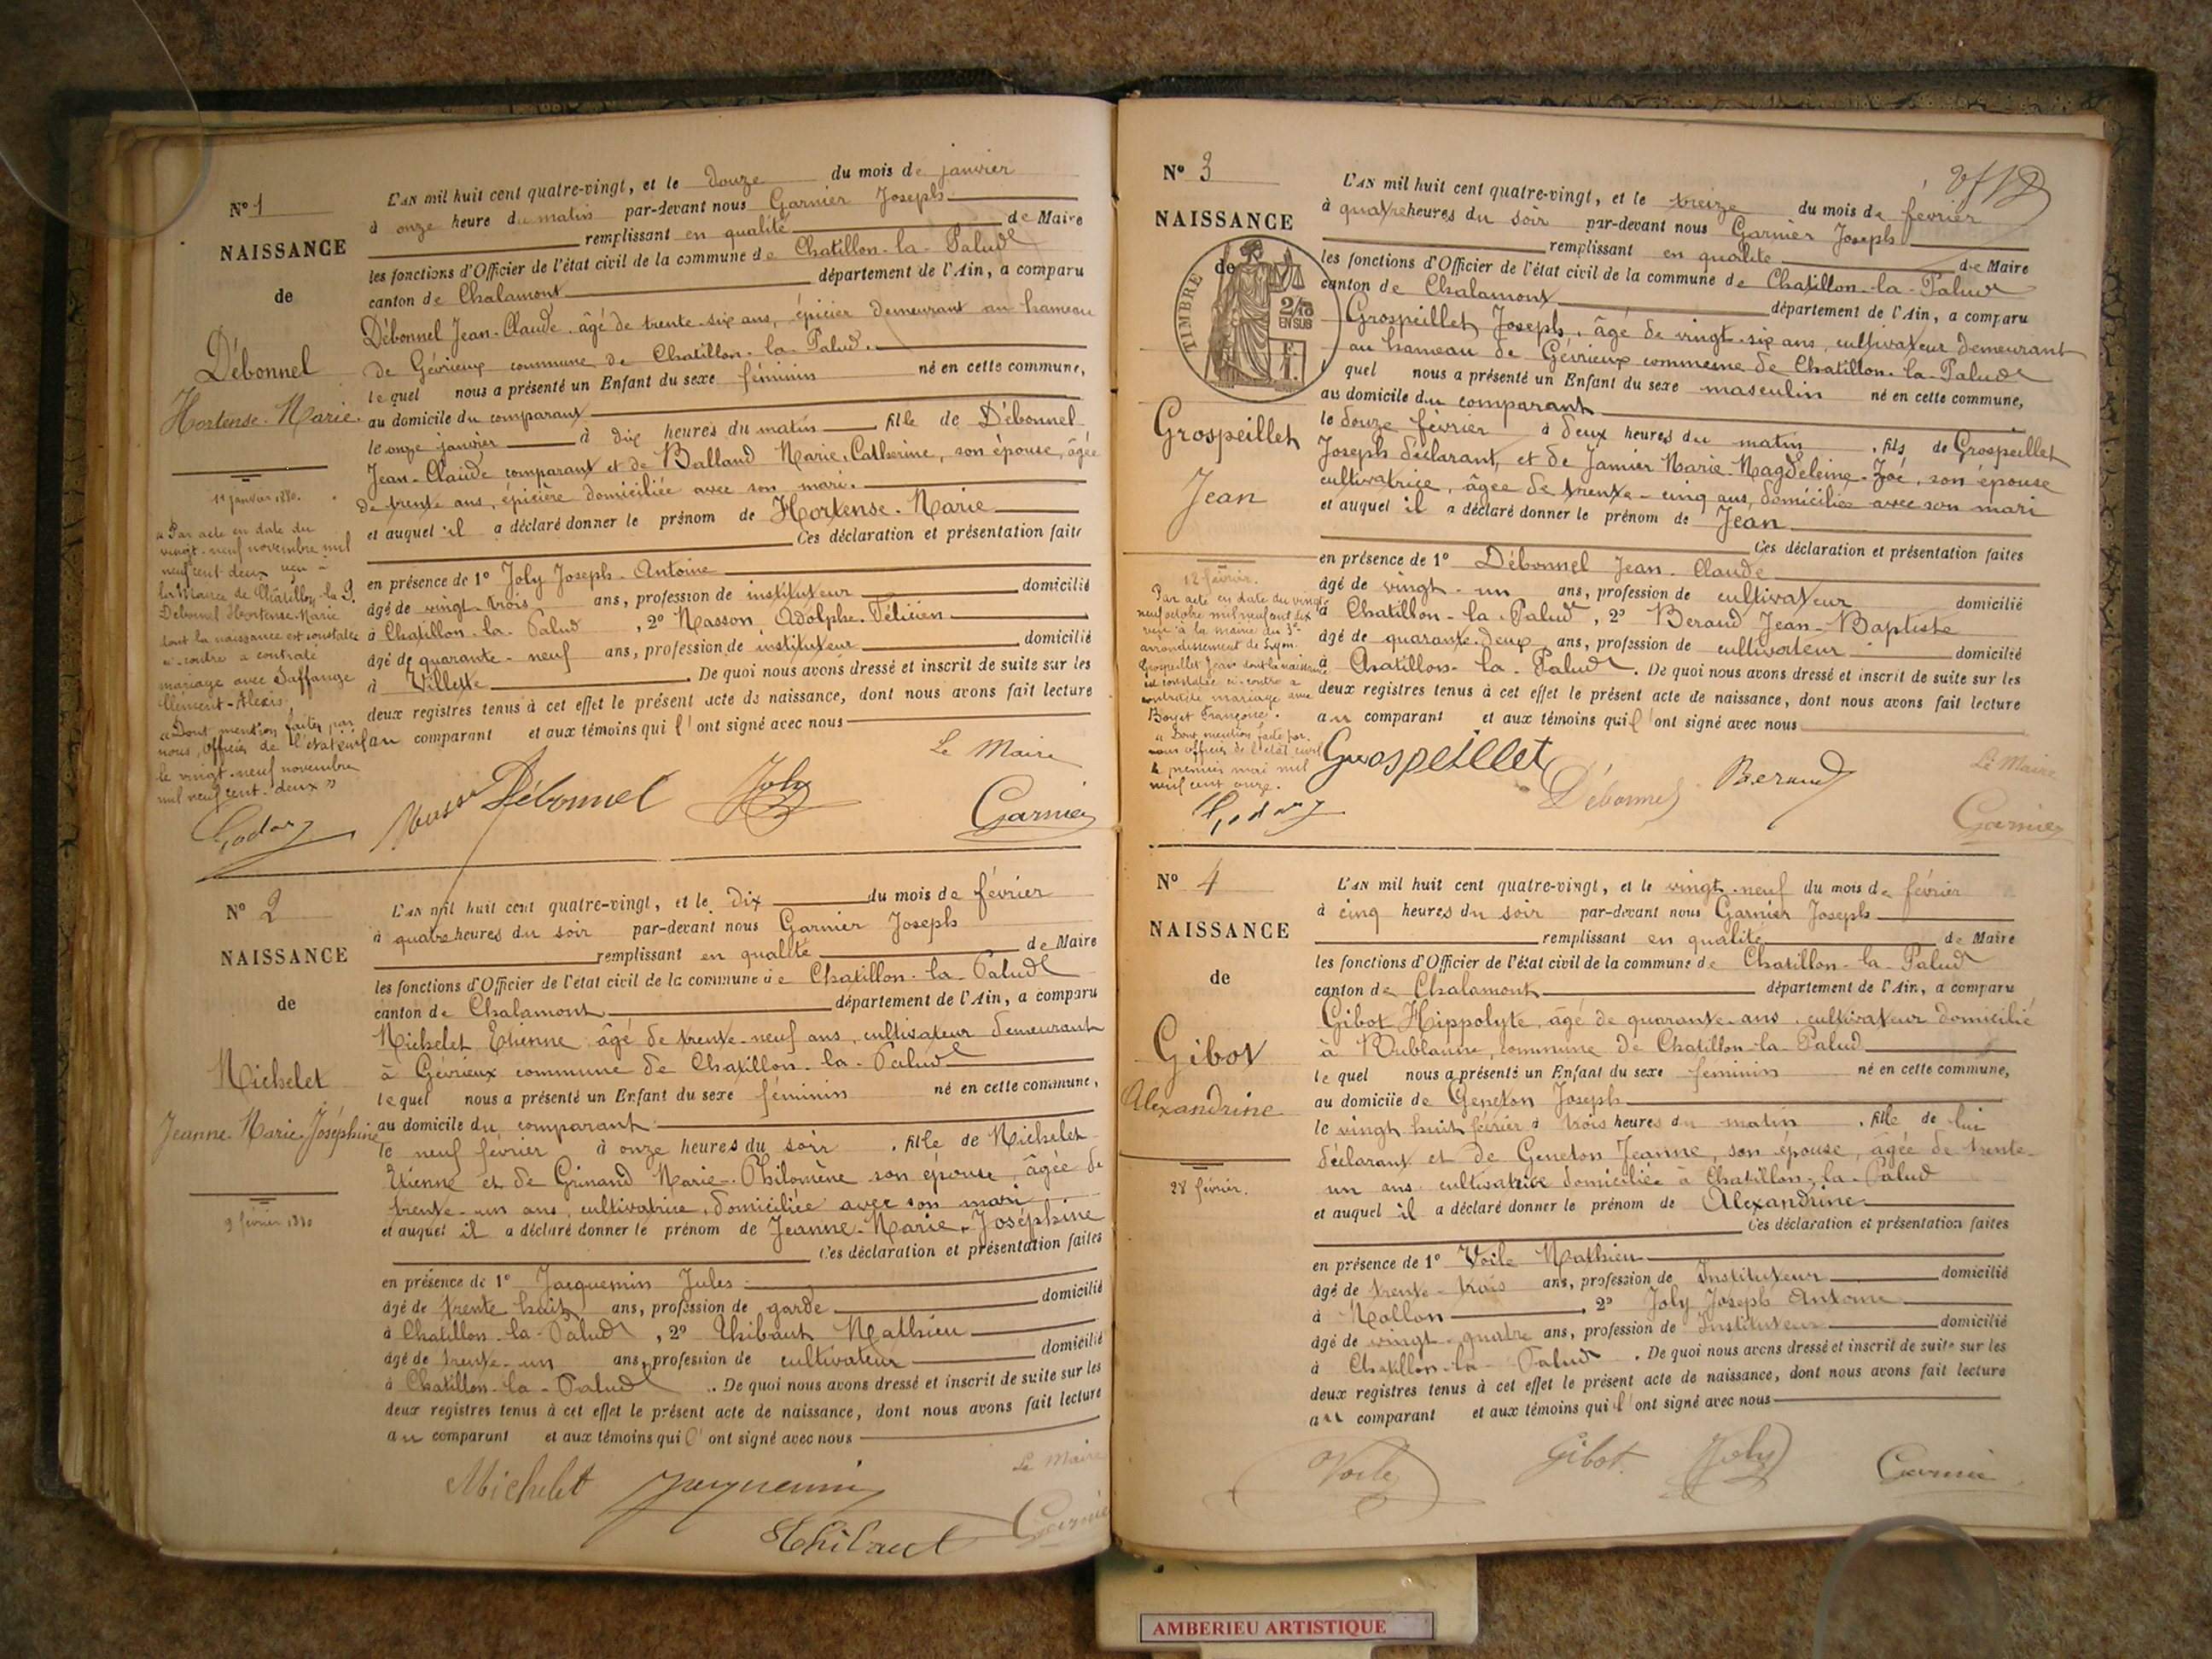 Nº 1
NAISSANCE
de
Débonnel
Hortense-Marie.
11 janvier 1880.
« Par acte en date du
vingt-neuf novembre mil
neuf cent deux reçu à
la Mairie de Châtillon-la-P.
Débonnel Hortense-Marie
dont la naissance est constatée
ci-contre a contracté
mariage avec
Clément-Alexis.
« Dont mention faite, par
nous, officier de l'état civil
le vingt-neuf novembre
mil neuf cent deux »
L'AN mil huit cent quatre-vingt, et le douze du mois de janvier
à onze heure du matin par-devant nous Garnier Joseph
remplissant en qualité de Maire
les fonctions d'Officier de l'état civil de la commune de Chatillon-la-Palud
canton de Chalamont département de l'Ain, a comparu
Débonnel Jean-Claude âgé de trente-six ans, épicier demeurant au hameau
de Gévrieux commune de Chatillon-la-Palud.
lequel nous a présenté un Enfant du sexe féminin né en cette commune,
au domicile du comparant
le onze janvier à dix heures du matin fille de Débonnel
Jean-Claude comparant et de Balland Marie-Catherine, son épouse, âgée
de trente ans, épicière domiciliée avec son mari.
et auquel il a déclaré donner le prénom de Hortense-Marie
Ces déclaration et présentation faite
en présence de 1º Joly Joseph-Antoine
âgé de vingt-trois ans, profession de instituteur domicilié
à Chatillon-la-Palud, 2º Masson Adolphe-Félicien
âgé de quarante-neuf ans, profession de instituteur domicilié
à Villette. De quoi nous avons dressé et inscrit de suite sur les
deux registres tenus à cet effet le présent acte de naissance, dont nous avons fait lecture
au comparant et aux témoins qui l'ont signé avec nous
Le Maire
Débonnel Joly Garnier
Nº 2
NAISSANCE
de
Michelet
Jeanne-Marie-Joséphine
9 février 1880
L'AN mil huit cent quatre-vingt, et le dix du mois de février
à quatre heures du soir par-devant nous Garnier Joseph
remplissant en qualité de Maire
les fonctions d'Officier de l'état civil de la commune de Chatillon-la-Palud
canton de Chalamont département de l'Ain, a comparu
Michelet Etienne âgé de trente-neuf ans, cultivateur demeurant
à Gévrieux commune de Chatillon-la-Palud
lequel nous a présenté un Enfant du sexe féminin né en cette commune,
au domicile du comparant
le neuf février à onze heures du soir, fille de Michelet
Etienne et de Grinand Marie-Philomène son épouse, âgée de
trente-un ans, cultivatrice, domiciliée avec son mari
et auquel il a déclaré donner le prénom de Jeanne-Marie-Joséphine
Ces déclaration et présentation faites
en présence de 1º Jacquemin Jules
âgé de trente huit ans, profession de garde domicilié
à Chatillon-la-Palud, 2º Thibaut Mathieu
âgé de trente-un ans, profession de cultivateur domicilié
à Chatillon-la-Palud. De quoi nous avons dressé et inscrit de suite sur les
deux registres tenus à cet effet le présent acte de naissance, dont nous avons fait lecture
au comparant et aux témoins qui l'ont signé avec nous
Le Maire
Michelet Jacquemin Garnier
Thibaut
Nº 3
NAISSANCE
de
TIMBRE
2/10
EN SUS
Grospeillet
Jean
12 février.
Par acte en date du vingt
neuf octobre mil neuf cent dix
reçu à la mairie du 3e
arrondissement de Lyon
Grospeillet Jean dont la naissance
est constatée ci-contre a
contracté mariage avec
Boyet Françoise.
« Dont mention faite par
nous officier de l'état civil
le premier mai mil
neuf cent onze.
L'AN mil huit cent quatre-vingt, et le treize du mois de février
à quatre heures du soir par-devant nous Garnier Joseph
remplissant en qualité de Maire
les fonctions d'Officier de l'état civil de la commune de Chatillon-la-Palud
canton de Chalamont département de l'Ain, a comparu
Grospeillet Joseph, âgé de vingt-six ans, cultivateur demeurant
au hameau de Gévrieux commune de Chatillon-la-Palud
quel nous a présenté un Enfant du sexe masculin né en cette commune,
au domicile du comparant
le douze février à deux heures du matin, fils de Grospeillet
Joseph déclarant, et de Janier Marie-Magdeleine-Zoé, son épouse
cultivatrice, âgée de trente-cinq ans, domiciliée avec son mari
et auquel il a déclaré donner le prénom de Jean
Ces déclaration et présentation faites
en présence de 1º Débonnel Jean-Claude
âgé de vingt-un ans, profession de cultivateur domicilié
à Chatillon-la-Palud, 2º Beraud Jean-Baptiste
âgé de quarante-deux ans, profession de cultivateur domicilié
à Chatillon-la-Palud. De quoi nous avons dressé et inscrit de suite sur les
deux registres tenus à cet effet le présent acte de naissance, dont nous avons fait lecture
au comparant et aux témoins qui l'ont signé avec nous
Le Maire
Grospeillet Débonnel Beraud Garnier
Nº 4
NAISSANCE
de
Gibot
Alexandrine
28 février.
L'AN mil huit cent quatre-vingt, et le vingt-neuf du mois de février
à cinq heures du soir par-devant nous Garnier Joseph
remplissant en qualité de Maire
les fonctions d'Officier de l'état civil de la commune de Chatillon-la-Palud
canton de Chalamont département de l'Ain, a comparu
Gibot Hippolyte, âgé de quarante-ans, cultivateur domicilié
à Bublanne, commune de Chatillon-la-Palud
lequel nous a présenté un Enfant du sexe féminin né en cette commune,
au domicile de Geneton Joseph
le vingt huit février à trois heures du matin, fille de lui
déclarant et de Geneton Jeanne, son épouse, âgée de trente-
un ans cultivatrice domiciliée à Chatillon-la-Palud
et auquel il a déclaré donner le prénom de Alexandrine
Ces déclaration et présentation faites
en présence de 1º Voile Mathieu
âgé de trente-trois ans, profession de Instituteur domicilié
à Mollon, 2º Joly Joseph Antoine
âgé de vingt-quatre ans, profession de Instituteur domicilié
à Chatillon-la-Palud. De quoi nous avons dressé et inscrit de suite sur les
deux registres tenus à cet effet le présent acte de naissance, dont nous avons fait lecture
au comparant et aux témoins qui l'ont signé avec nous
Voile Gibot Joly Garnier
AMBERIEU ARTISTIQUE